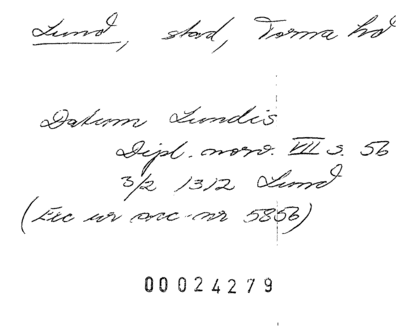 Lund, stad, Torna hd
Datum Lundis
Dipl. norv. VII s. 56
3/2 1312 Lund
(Exc ur acc-nr 5856)
00024279